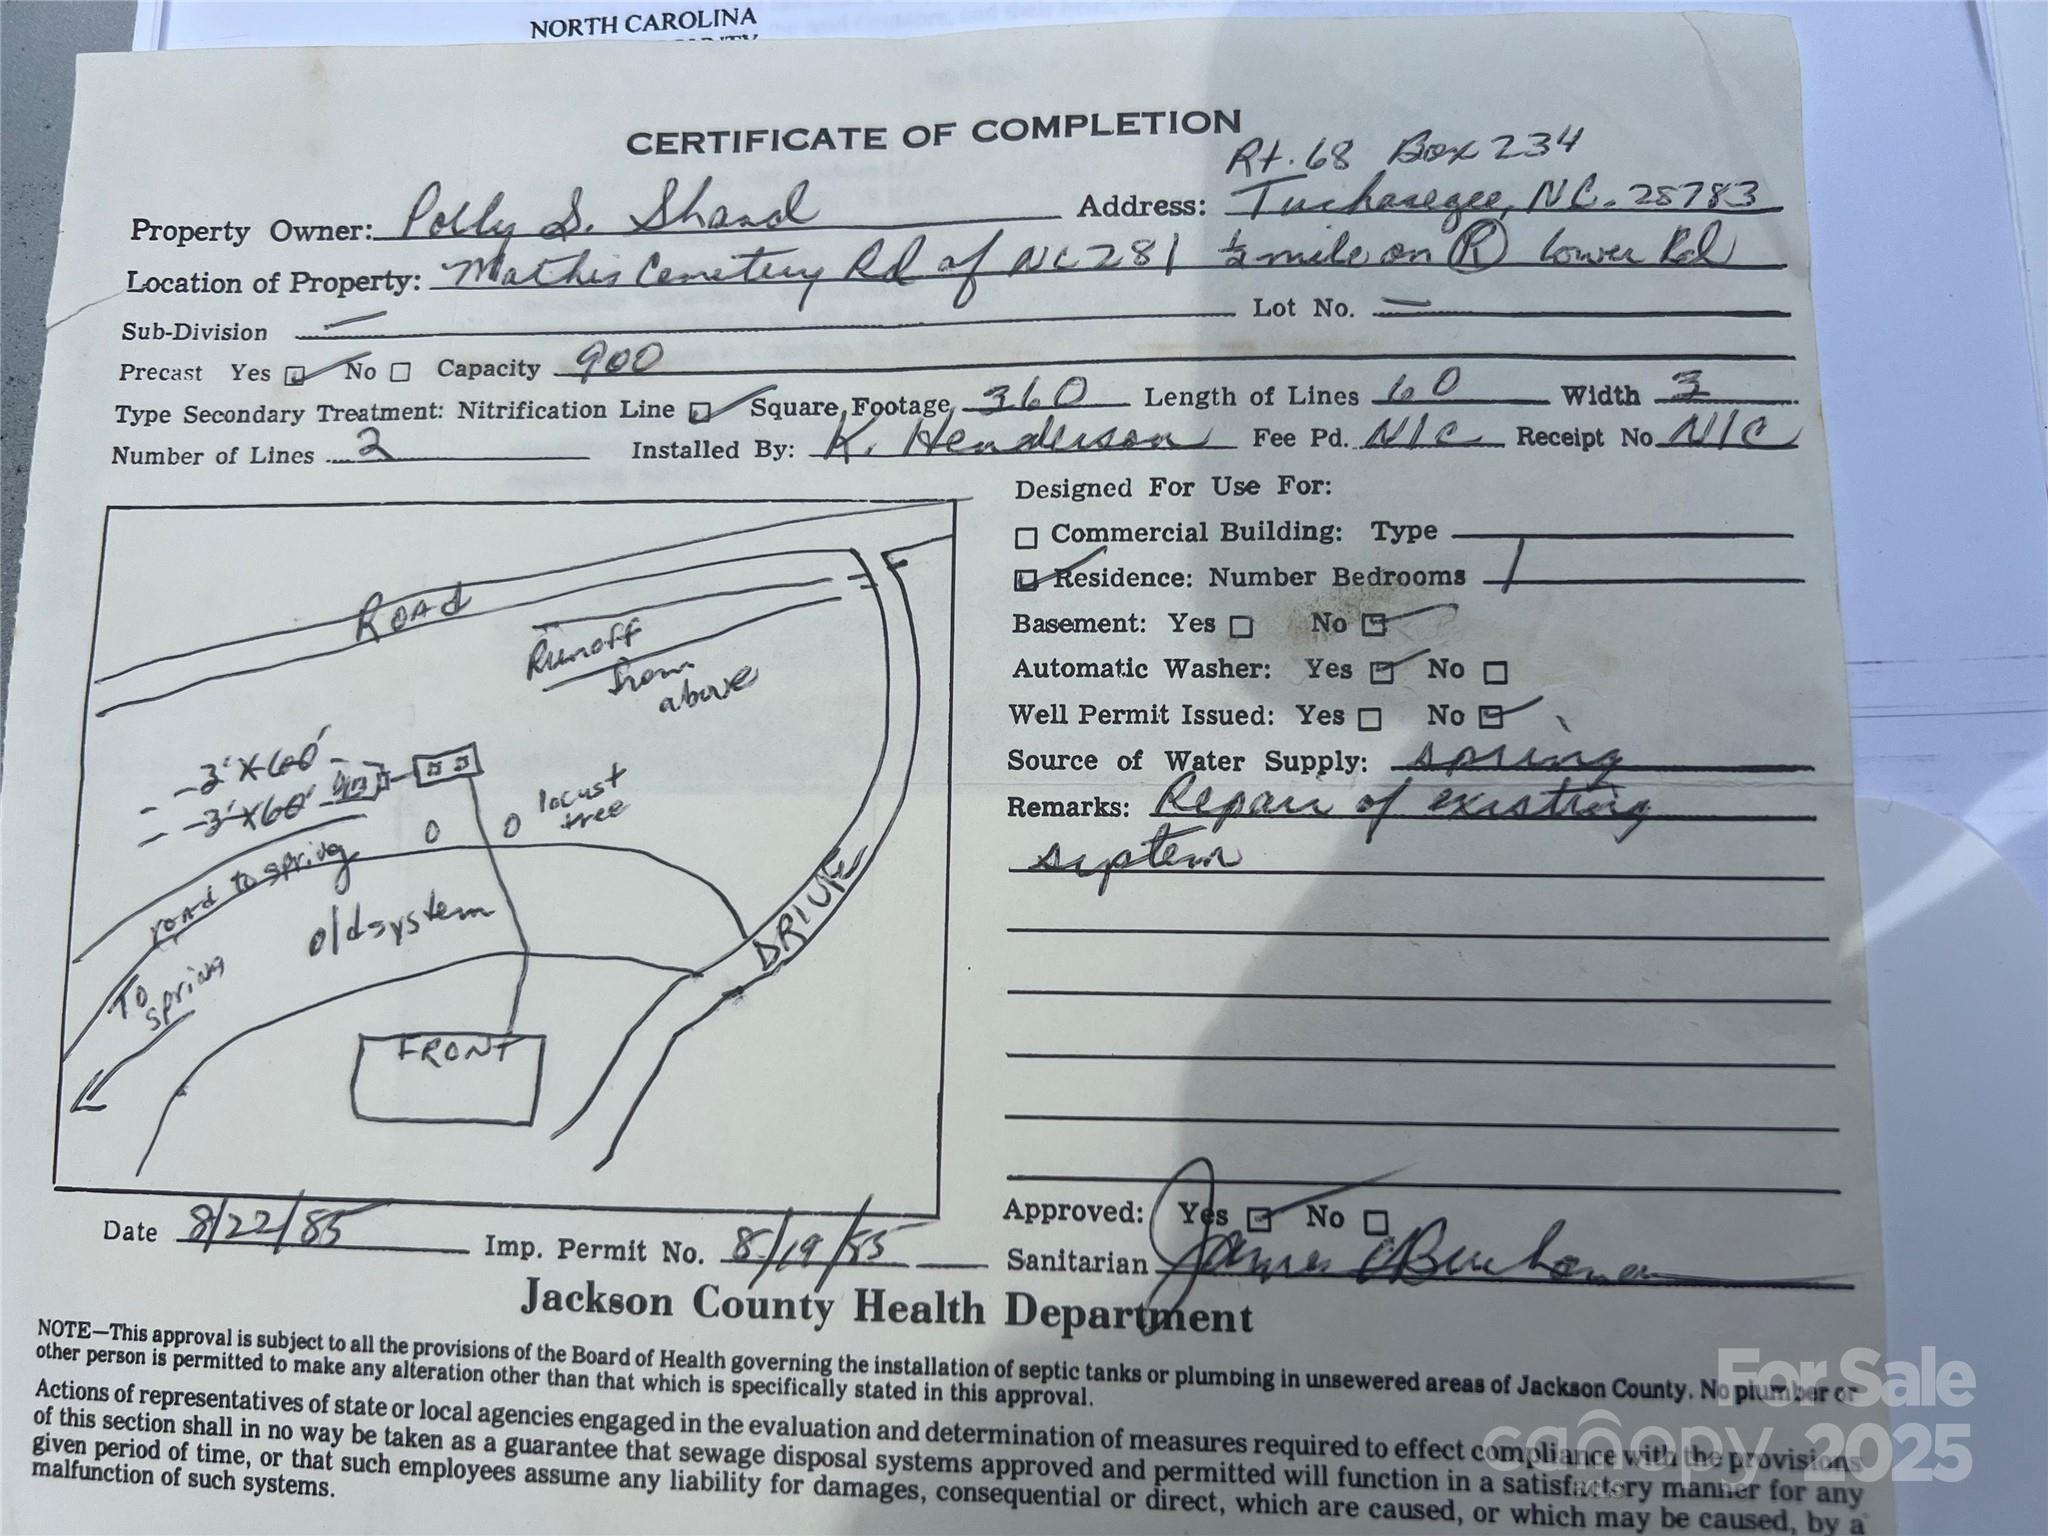 NORTH CAROLINA
CERTIFICATE OF COMPLETION
Rt. 68 Box 234
Property Owner: Polly S. Shand Address: Tuckasegee, NC. 28783
Location of Property: Mathis Cemetery Rd of NC 281 ½ mile on R Lower Rd
Sub-Division — Lot No. —
Precast Yes No Capacity 900
Type Secondary Treatment: Nitrification Line Square Footage 360 Length of Lines 60 Width 3
Number of Lines 2 Installed By: K. Henderson Fee Pd. N/C Receipt No N/C
Designed For Use For:
Commercial Building: Type
Residence: Number Bedrooms 1
Basement: Yes No
Automatic Washer: Yes No
Well Permit Issued: Yes No
Source of Water Supply: spring
Remarks: Repair of existing
system
ROAd
Runoff
from
above
3' X 60'
3' X 60'
locust
tree
road to spring
oldsystem
To
spring
DRIVE
FRONT
Approved: Yes No
Date 8/22/85 Imp. Permit No. 8/19/85
Sanitarian James Buchanan
Jackson County Health Department
NOTE—This approval is subject to all the provisions of the Board of Health governing the installation of septic tanks or plumbing in unsewered areas of Jackson County. No plumber or
other person is permitted to make any alteration other than that which is specifically stated in this approval.
Actions of representatives of state or local agencies engaged in the evaluation and determination of measures required to effect compliance with the provisions
of this section shall in no way be taken as a guarantee that sewage disposal systems approved and permitted will function in a satisfactory manner for any
given period of time, or that such employees assume any liability for damages, consequential or direct, which are caused, or which may be caused, by a
malfunction of such systems.
For Sale
canopy 2025
MLS